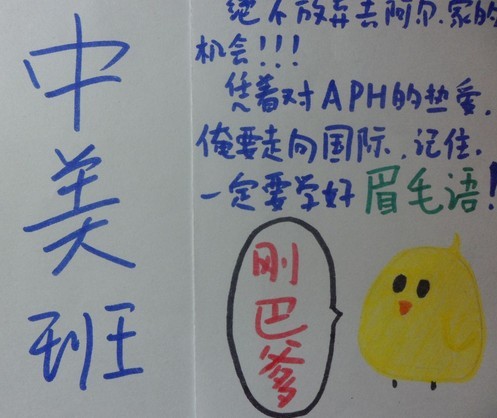 中美班
绝不放弃去阿尔.家的
机会!!!
凭着对APH的热爱,
俺要走向国际.,记住,
一定要学好眉毛语!
刚巴爹